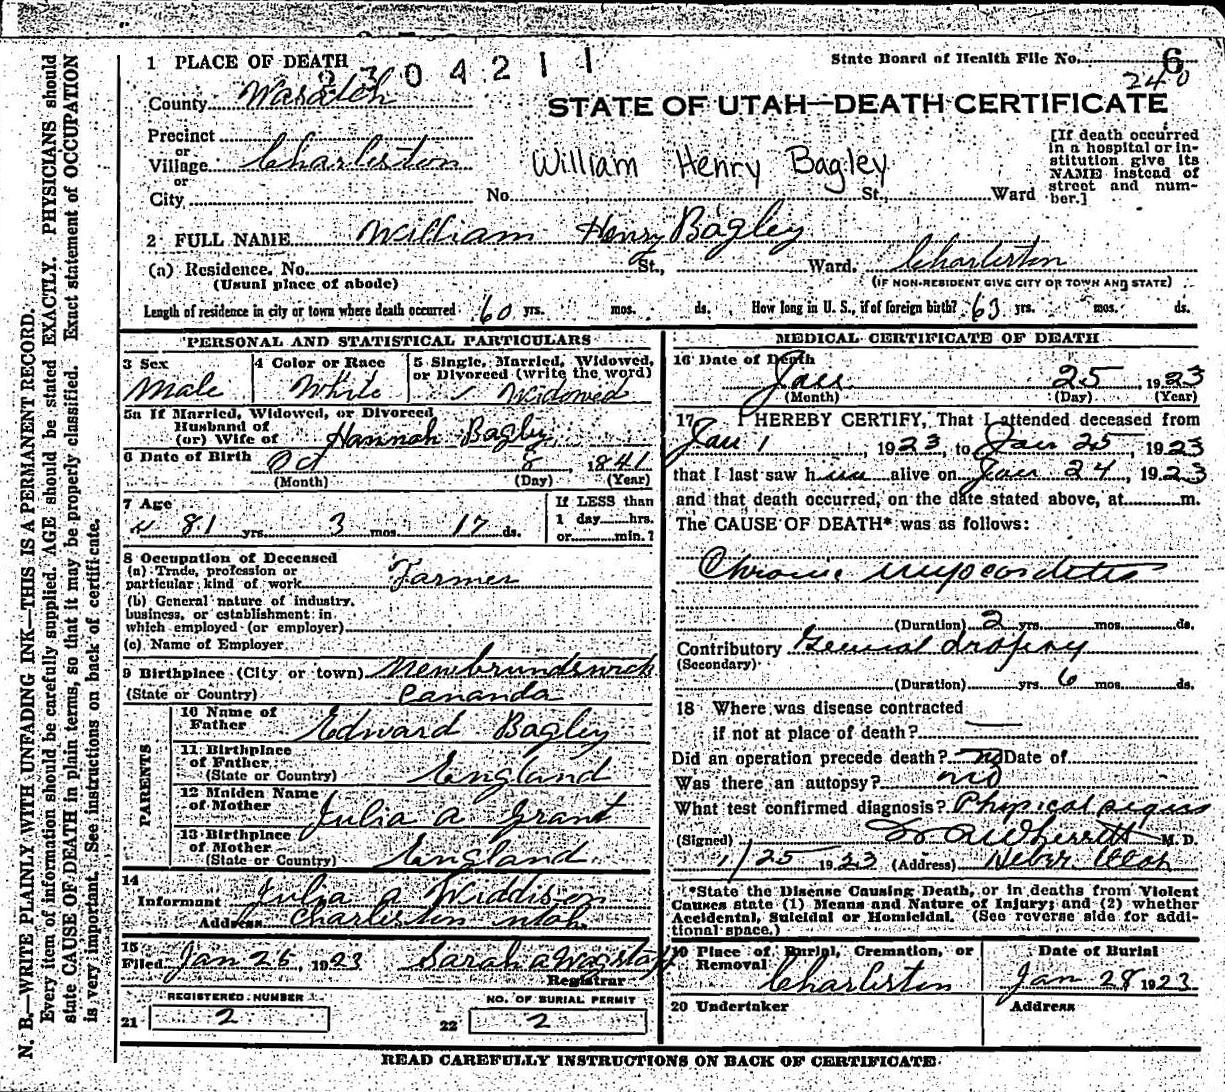 1 PLACE OF DEATH
2304211
State Board of Health File No. 6
240
County Wasatch
STATE OF UTAH—DEATH CERTIFICATE
Precinct
or
Village Charleston
or
City
William Henry Bagley
No. St., Ward
[If death occurred
in a hospital or in-
stitution give its
NAME instead of
street and num-
ber.]
2 FULL NAME William Henry Bagley
(a) Residence. No. St., Ward. Charleston
(Usual place of abode) (IF NON-RESIDENT GIVE CITY OR TOWN AND STATE)
Length of residence in city or town where death occurred 60 yrs. mos. ds. How long in U. S., if of foreign birth? 63 yrs. mos. ds.
PERSONAL AND STATISTICAL PARTICULARS
3 Sex
Male
4 Color or Race
White
5 Single, Married, Widowed,
or Divorced (write the word)
Widowed
5a If Married, Widowed, or Divorced
Husband of
(or) Wife of Hannah Bagley
6 Date of Birth Oct 8, 1841
(Month) (Day) (Year)
7 Age
81 yrs. 3 mos. 17 ds.
If LESS than
1 day hrs.
or min.?
8 Occupation of Deceased
(a) Trade, profession or
particular kind of work Farmer
(b) General nature of industry,
business, or establishment in
which employed (or employer)
(c) Name of Employer
9 Birthplace (City or town) Newbrundswick
(State or Country) Cananda
PARENTS
10 Name of
Father Edward Bagley
11 Birthplace
of Father
(State or Country) England
12 Maiden Name
of Mother Julia A Grant
13 Birthplace
of Mother
(State or Country) England
14
Informant Julia A Widdison
Address Charleston Utah
15
Filed Jan 26, 1923 Sarah A Wagstaff
Registrar
REGISTERED NUMBER
21 2
NO. OF BURIAL PERMIT
22 2
MEDICAL CERTIFICATE OF DEATH
16 Date of Death
Jan 25, 1923
(Month) (Day) (Year)
17 I HEREBY CERTIFY, That I attended deceased from
Jan 1, 1923, to Jan 25, 1923
that I last saw him alive on Jan 24, 1923
and that death occurred, on the date stated above, at m.
The CAUSE OF DEATH* was as follows:
Chronic myocarditis
(Duration) 2 yrs. mos. ds.
Contributory General dropsy
(Secondary)
(Duration) yrs. 6 mos. ds.
18 Where was disease contracted
if not at place of death?
Did an operation precede death? no Date of
Was there an autopsy? no
What test confirmed diagnosis? Physical signs
(Signed) Wherritt M. D.
1/25 1923 (Address) Heber Utah
*State the Disease Causing Death, or in deaths from Violent
Causes state (1) Means and Nature of Injury; and (2) whether
Accidental, Suicidal or Homicidal. (See reverse side for addi-
tional space.)
19 Place of Burial, Cremation, or
Removal Charleston
Date of Burial
Jan 28 1923
20 Undertaker
Address
READ CAREFULLY INSTRUCTIONS ON BACK OF CERTIFICATE
N. B.—WRITE PLAINLY WITH UNFADING INK—THIS IS A PERMANENT RECORD.
Every item of information should be carefully supplied. AGE should be stated EXACTLY. PHYSICIANS should
state CAUSE OF DEATH in plain terms, so that it may be properly classified. Exact statement of OCCUPATION
is very important. See instructions on back of certificate.